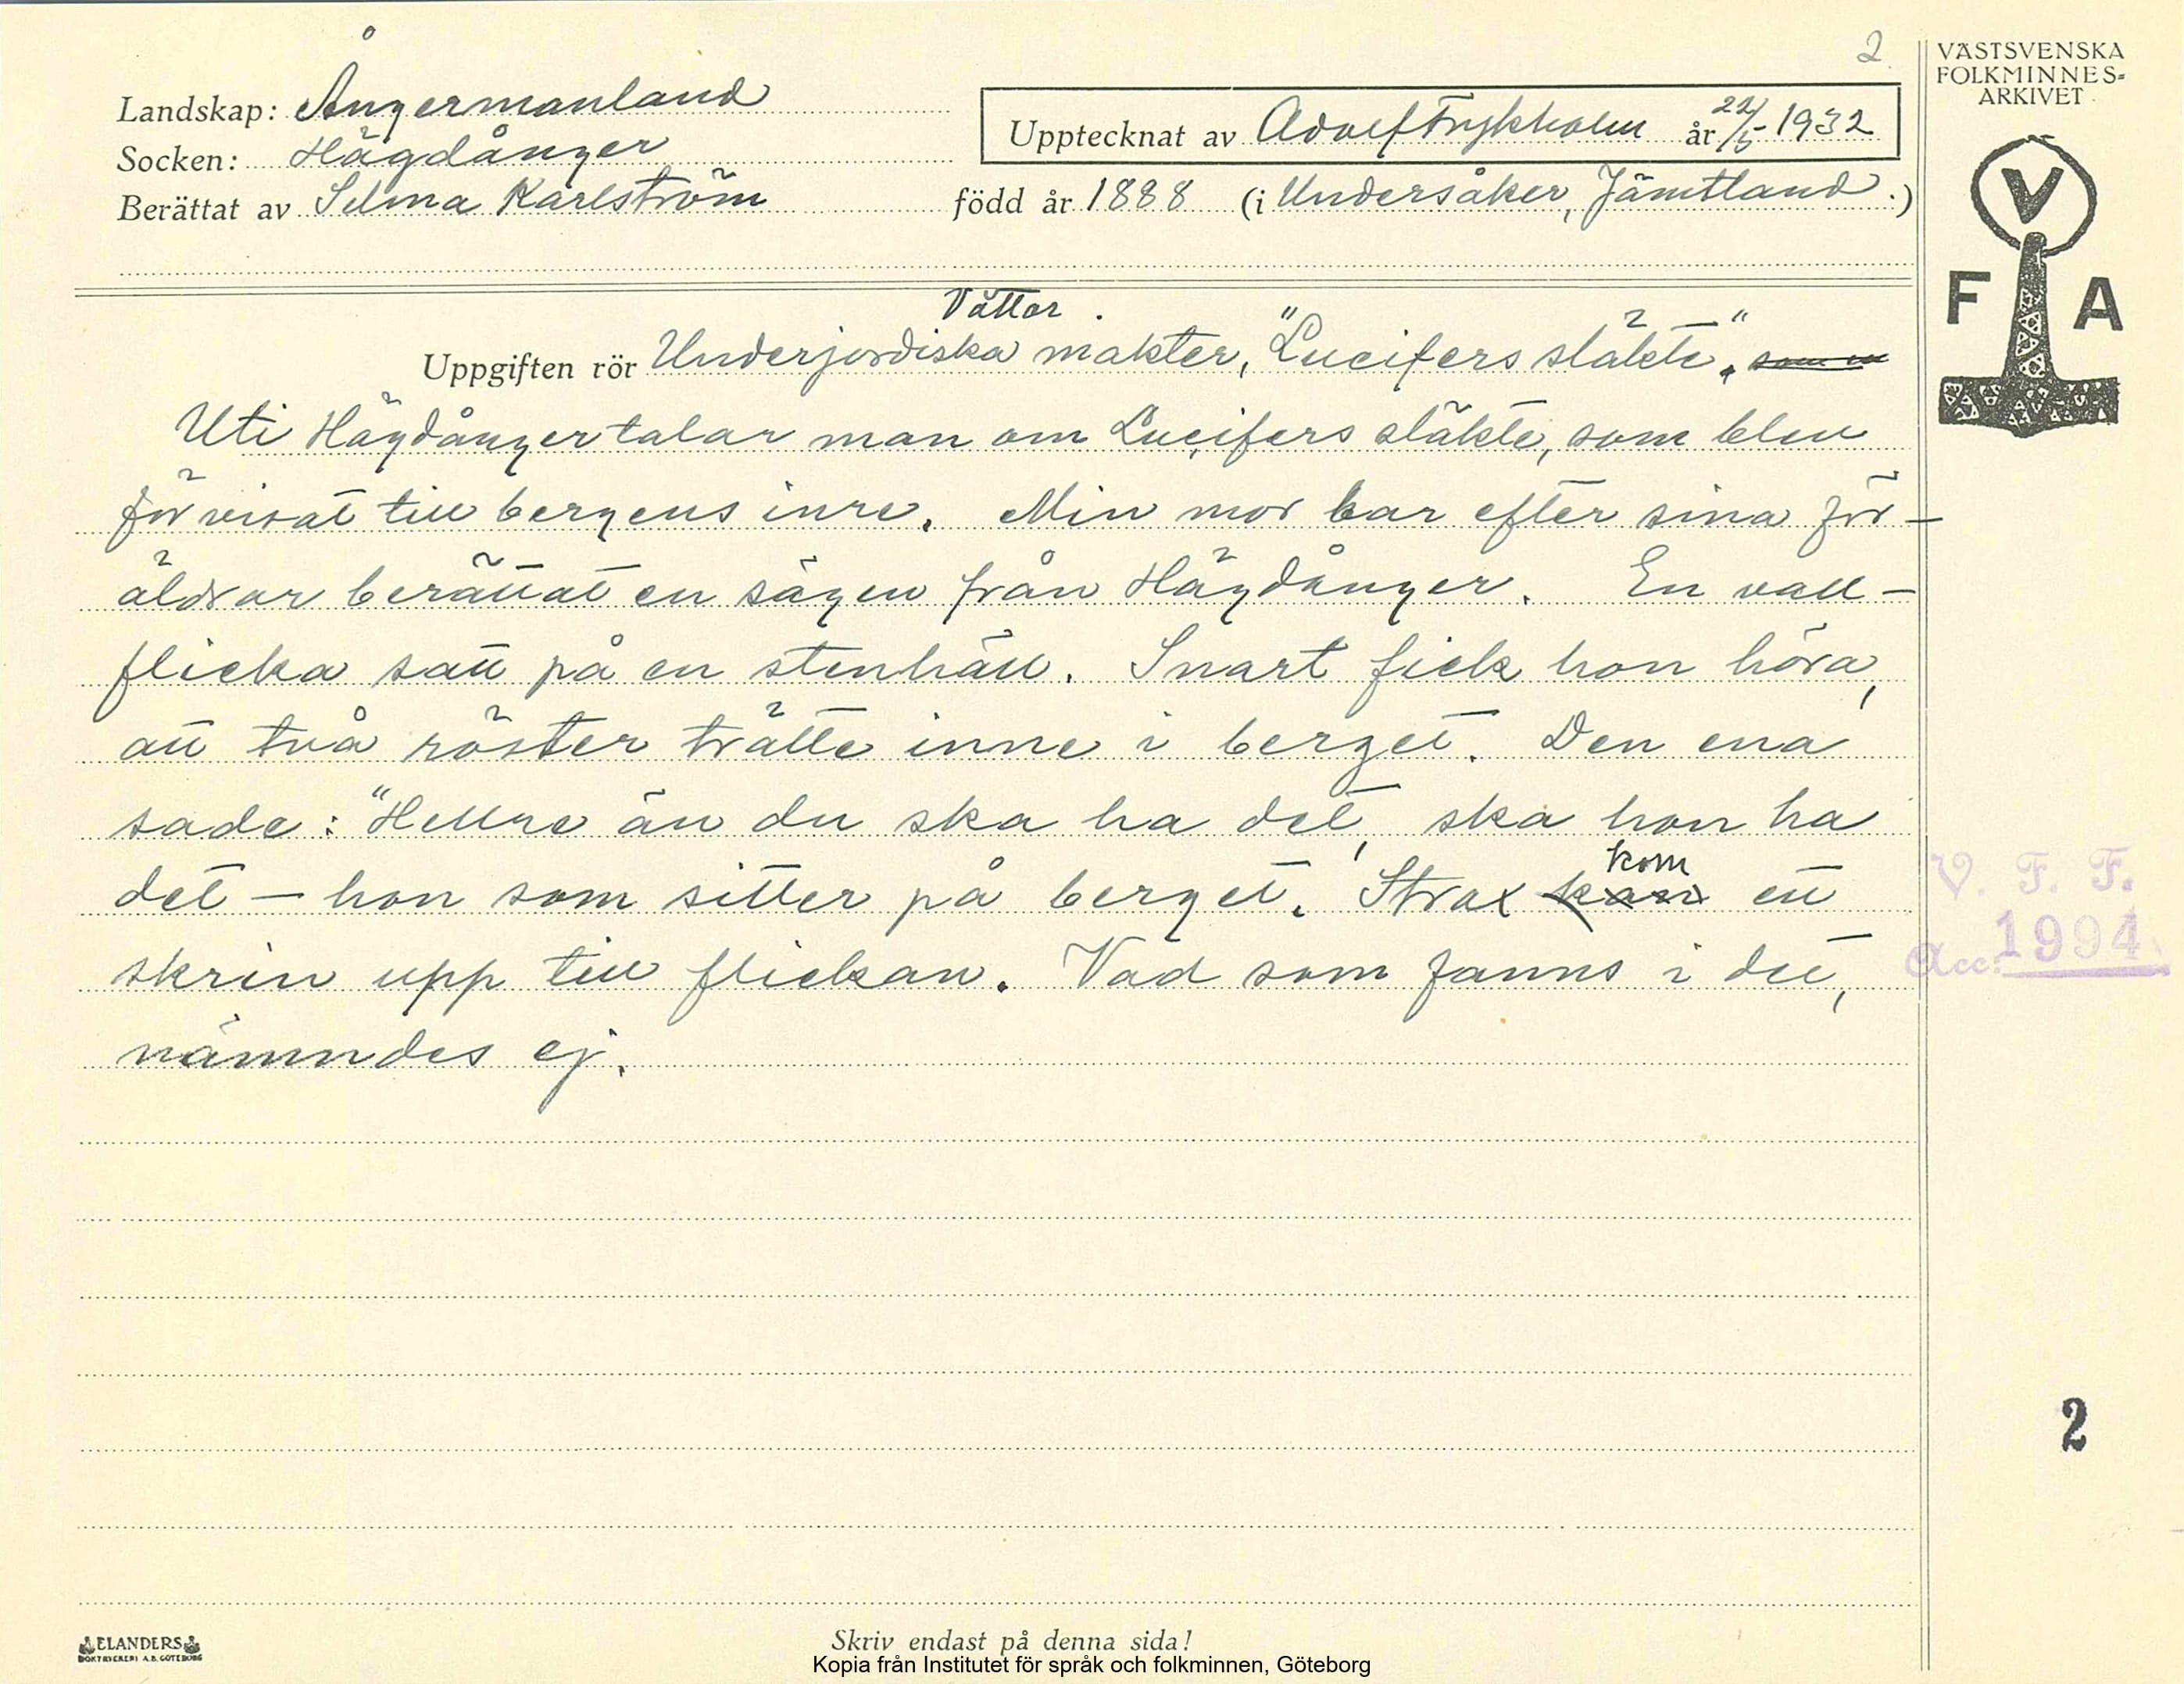 2
VÄSTSVENSKA
FOLKMINNES-
ARKIVET
Landskap: Ångermanland
Upptecknat av Adolf Frykholm år 22/5 1932
Socken: Hägdånger
Berättat av Selma Karlström född år 1888 (i Undersåker, Jämtland.)
V
F A
Vättar.
Uppgiften rör Underjordiska makter, "Lucifers släkte".
Uti Hägdånger talar man om Lucifers släkte, som blev
förvisat till bergens inre. Min mor har efter sina för-
äldrar berättat en sägen från Hägdånger. En vall-
flicka satt på en stenhäll. Snart fick hon höra,
att två röster trätte inne i berget. Den ena
sade: "Hellre än du ska ha det, ska hon ha
det – hon som sitter på berget." Strax kom ett
skrin upp till flickan. Vad som fanns i det,
nämndes ej.
V. F. F.
Acc: 1994
2
ELANDERS
BOKTRYCKERI A.B. GÖTEBORG
Skriv endast på denna sida!
Kopia från Institutet för språk och folkminnen, Göteborg